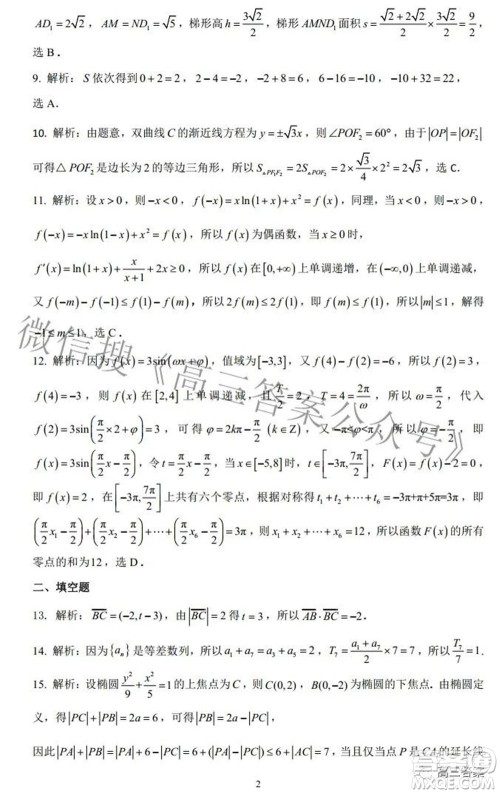 AD₁ = 2√2 ，AM = ND₁ = √5 ，梯形高 h = 3√2/2 ，梯形 AMND₁ 面积 s = (√2 + 2√2)/2 × 3√2/2 = 9/2 ，
选 B．
9. 解析：S 依次得到 0 + 2 = 2 ， 2 − 4 = −2 ， −2 + 8 = 6 ， 6 − 16 = −10 ， −10 + 32 = 22 ，
选 A.
10. 解析：由题意，双曲线 C 的渐近线方程为 y = ±√3x ，则 ∠POF₂ = 60° ，由于 |OP| = |OF₂|
可得△POF₂ 是边长为 2 的等边三角形，所以 S△PF₁F₂ = 2S△POF₂ = 2 × √3/4 × 2² = 2√3 ，选 C．
11. 解析：设 x > 0 ，则 −x < 0 ， f(−x) = x ln(1 + x) + x² = f(x) ，同理，当 x < 0 时， −x > 0 ，
f(−x) = −x ln(1 − x) + x² = f(x) ，所以 f(x) 为偶函数，当 x ≥ 0 时，
f′(x) = ln(1 + x) + x/(1 + x) + 2x ≥ 0 ，所以 f(x) 在 [0, +∞) 上单调递增，在 (−∞, 0) 上单调递减，
又 f(−m) − f(−1) ≤ f(1) − f(m) ，所以 2f(m) ≤ 2f(1) ，即 f(m) ≤ f(1) ，所以 |m| ≤ 1 ，解得
−1 ≤ m ≤ 1 ，选 C．
12. 解析：因为 f(x) = 3sin(ωx + φ) ，值域为 [−3,3] ，又 f(4) − f(2) = −6 ，所以 f(2) = 3 ，
f(4) = −3 ，则 f(x) 在 [2,4] 上单调减，且 T/2 = 2 ， T = 4 = 2π/ω ，所以 ω = π/2 ，代入
f(2) = 3sin(π/2 × 2 + φ) = 3 ，可得 φ = 2kπ − π/2 (k ∈ Z) ，又 −π < φ < π ，则 φ = −π/2 ，因此
f(x) = 3sin(π/2 x − π/2) ，令 t = π/2 x − π/2 ，当 x ∈ [−5,8] 时， t ∈ [−3π, 7π/2] ， F(x) = f(x) − 2 = 0 ，
即 f(x) = 2 ，在 [−3π, 7π/2] 上共有六个零点，根据对称可得 t₁ + t₂ + ⋯ + t₆ = −3π+π+5π=3π ，即
(π/2 x₁ − π/2) + (π/2 x₂ − π/2) + ⋯ + (π/2 x₆ − π/2) = 3π ，则 x₁ + x₂ + ⋯ + x₆ = 12 ，所以函数 F(x) 的所有
零点的和为12，选 D．
二、填空题
13. 解析：BC = (−2, t − 3) ，由 |BC| = 2 得 t = 3 ，所以 AB · BC = −2．
14. 解析：因为 {aₙ} 是等差数列，所以 a₁ + a₇ = a₃ + a₅ = 2 ， T₇ = (a₁ + a₇)/2 × 7 = 7 ，所以 T₇/7 = 1.
15. 解析：设椭圆 y²/9 + x²/5 = 1 的上焦点为 C ，则 C(0,2) ， B(0,−2) 为椭圆的下焦点．由椭圆定
义，得 |PC| + |PB| = 2a = 6 ，可得 |PB| = 2a − |PC| ，
因此 |PA| + |PB| = |PA| + 6 − |PC| = 6 + (|PA| − |PC|) ≤ 6 + |AC| = 7 ，当且仅当点 P 是 CA 的延长线
2
微信搜《高三答案公众号》
高三答案